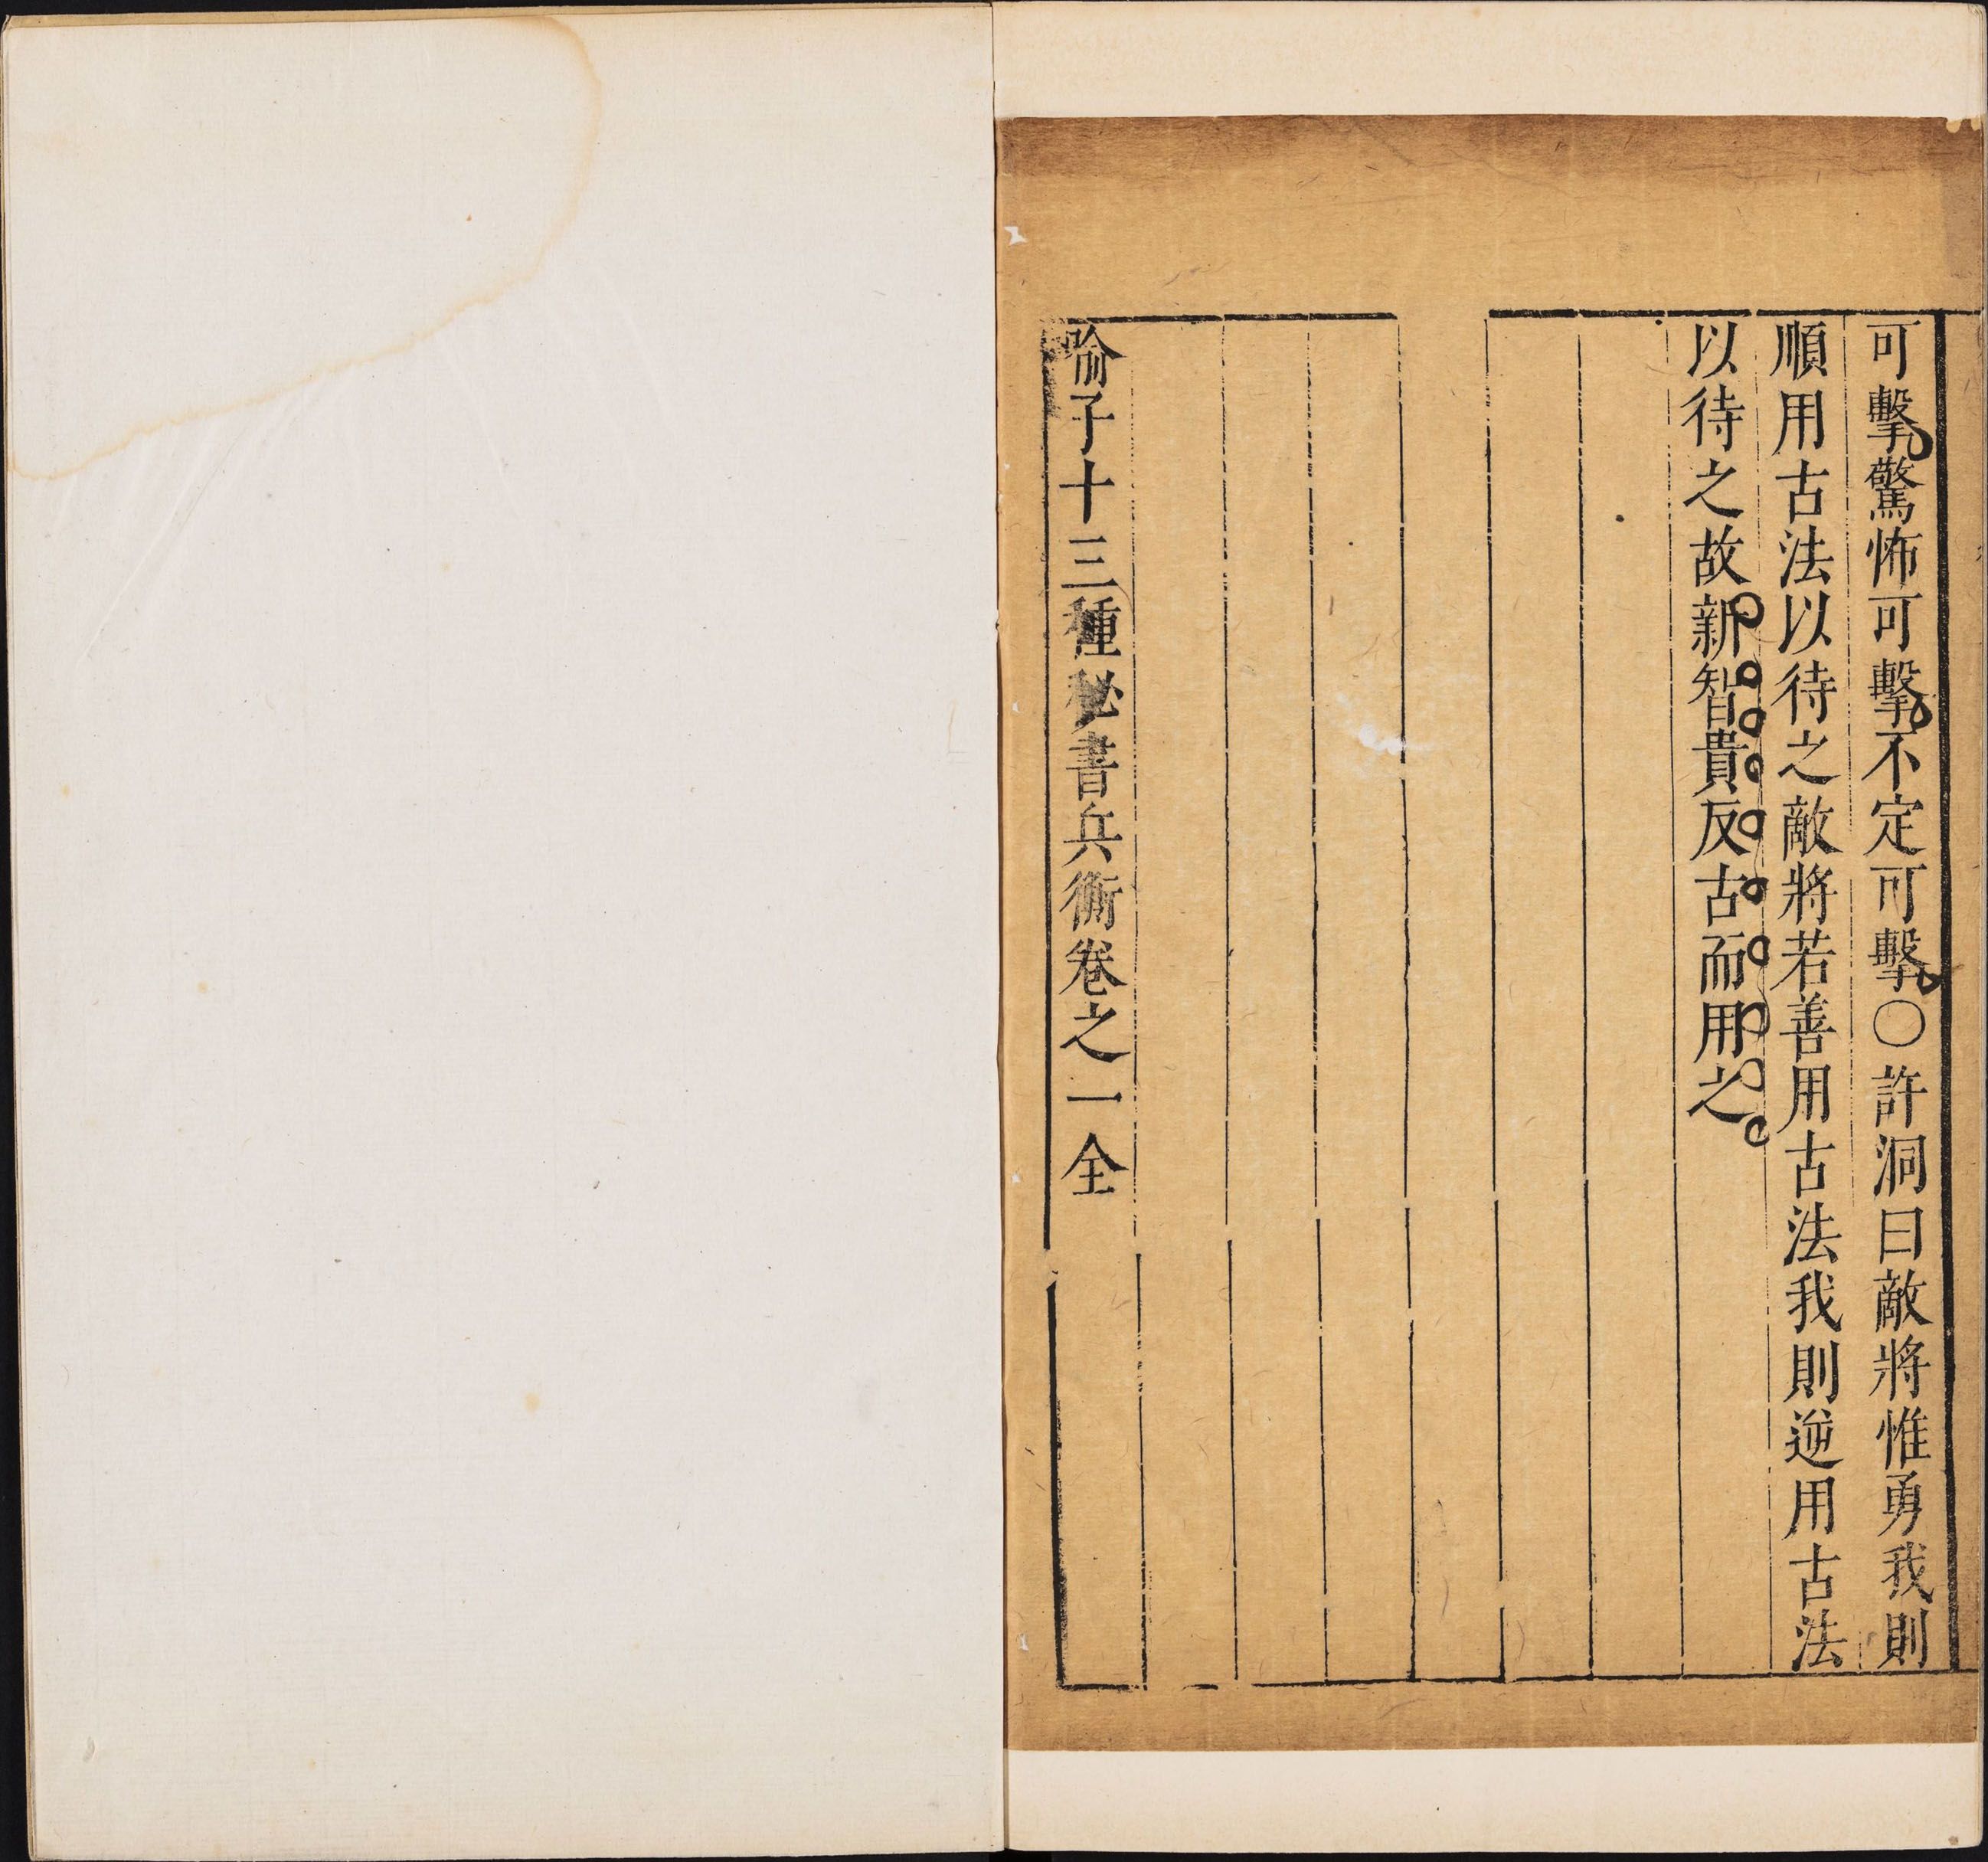 可擊驚怖可擊不定可擊〇許洞曰敵將惟勇我則
順用古法以待之敵將若善用古法我則逆用古法
以待之故新智貴反古而用之
喻子十三種秘書兵衡卷之一全